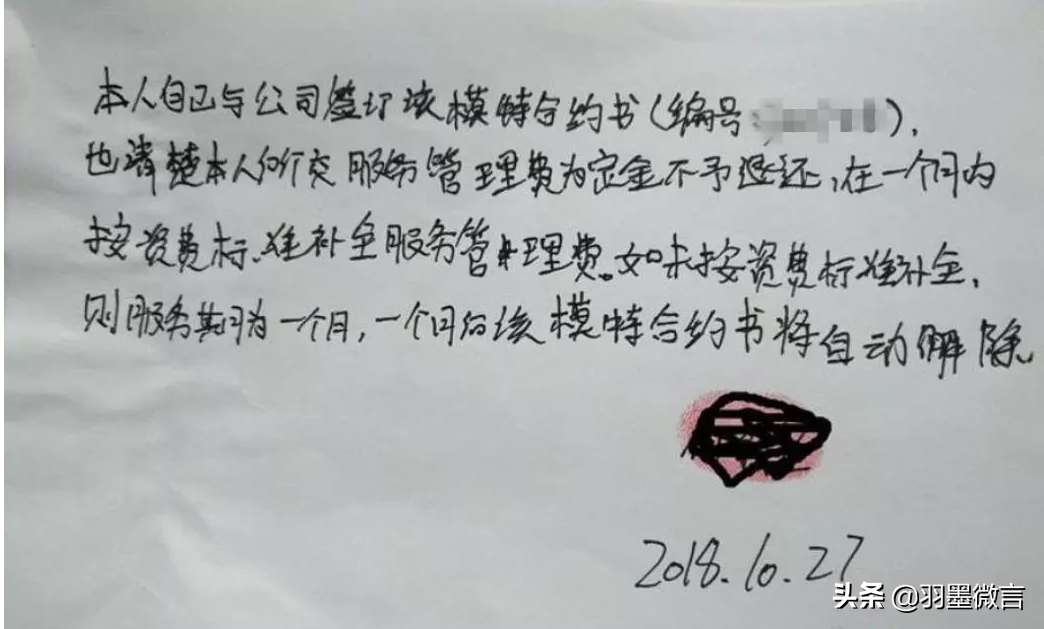 本人自己与公司签订该模特合约书(编号),
也清楚本人所交服务管理费为定金不予退还,在一个月内
按资费标准补全服务管理费。如未按资费标准补全,
则服务期为一个月,一个月后该模特合约书将自动解除
2018.10.27
头条 @羽墨微言